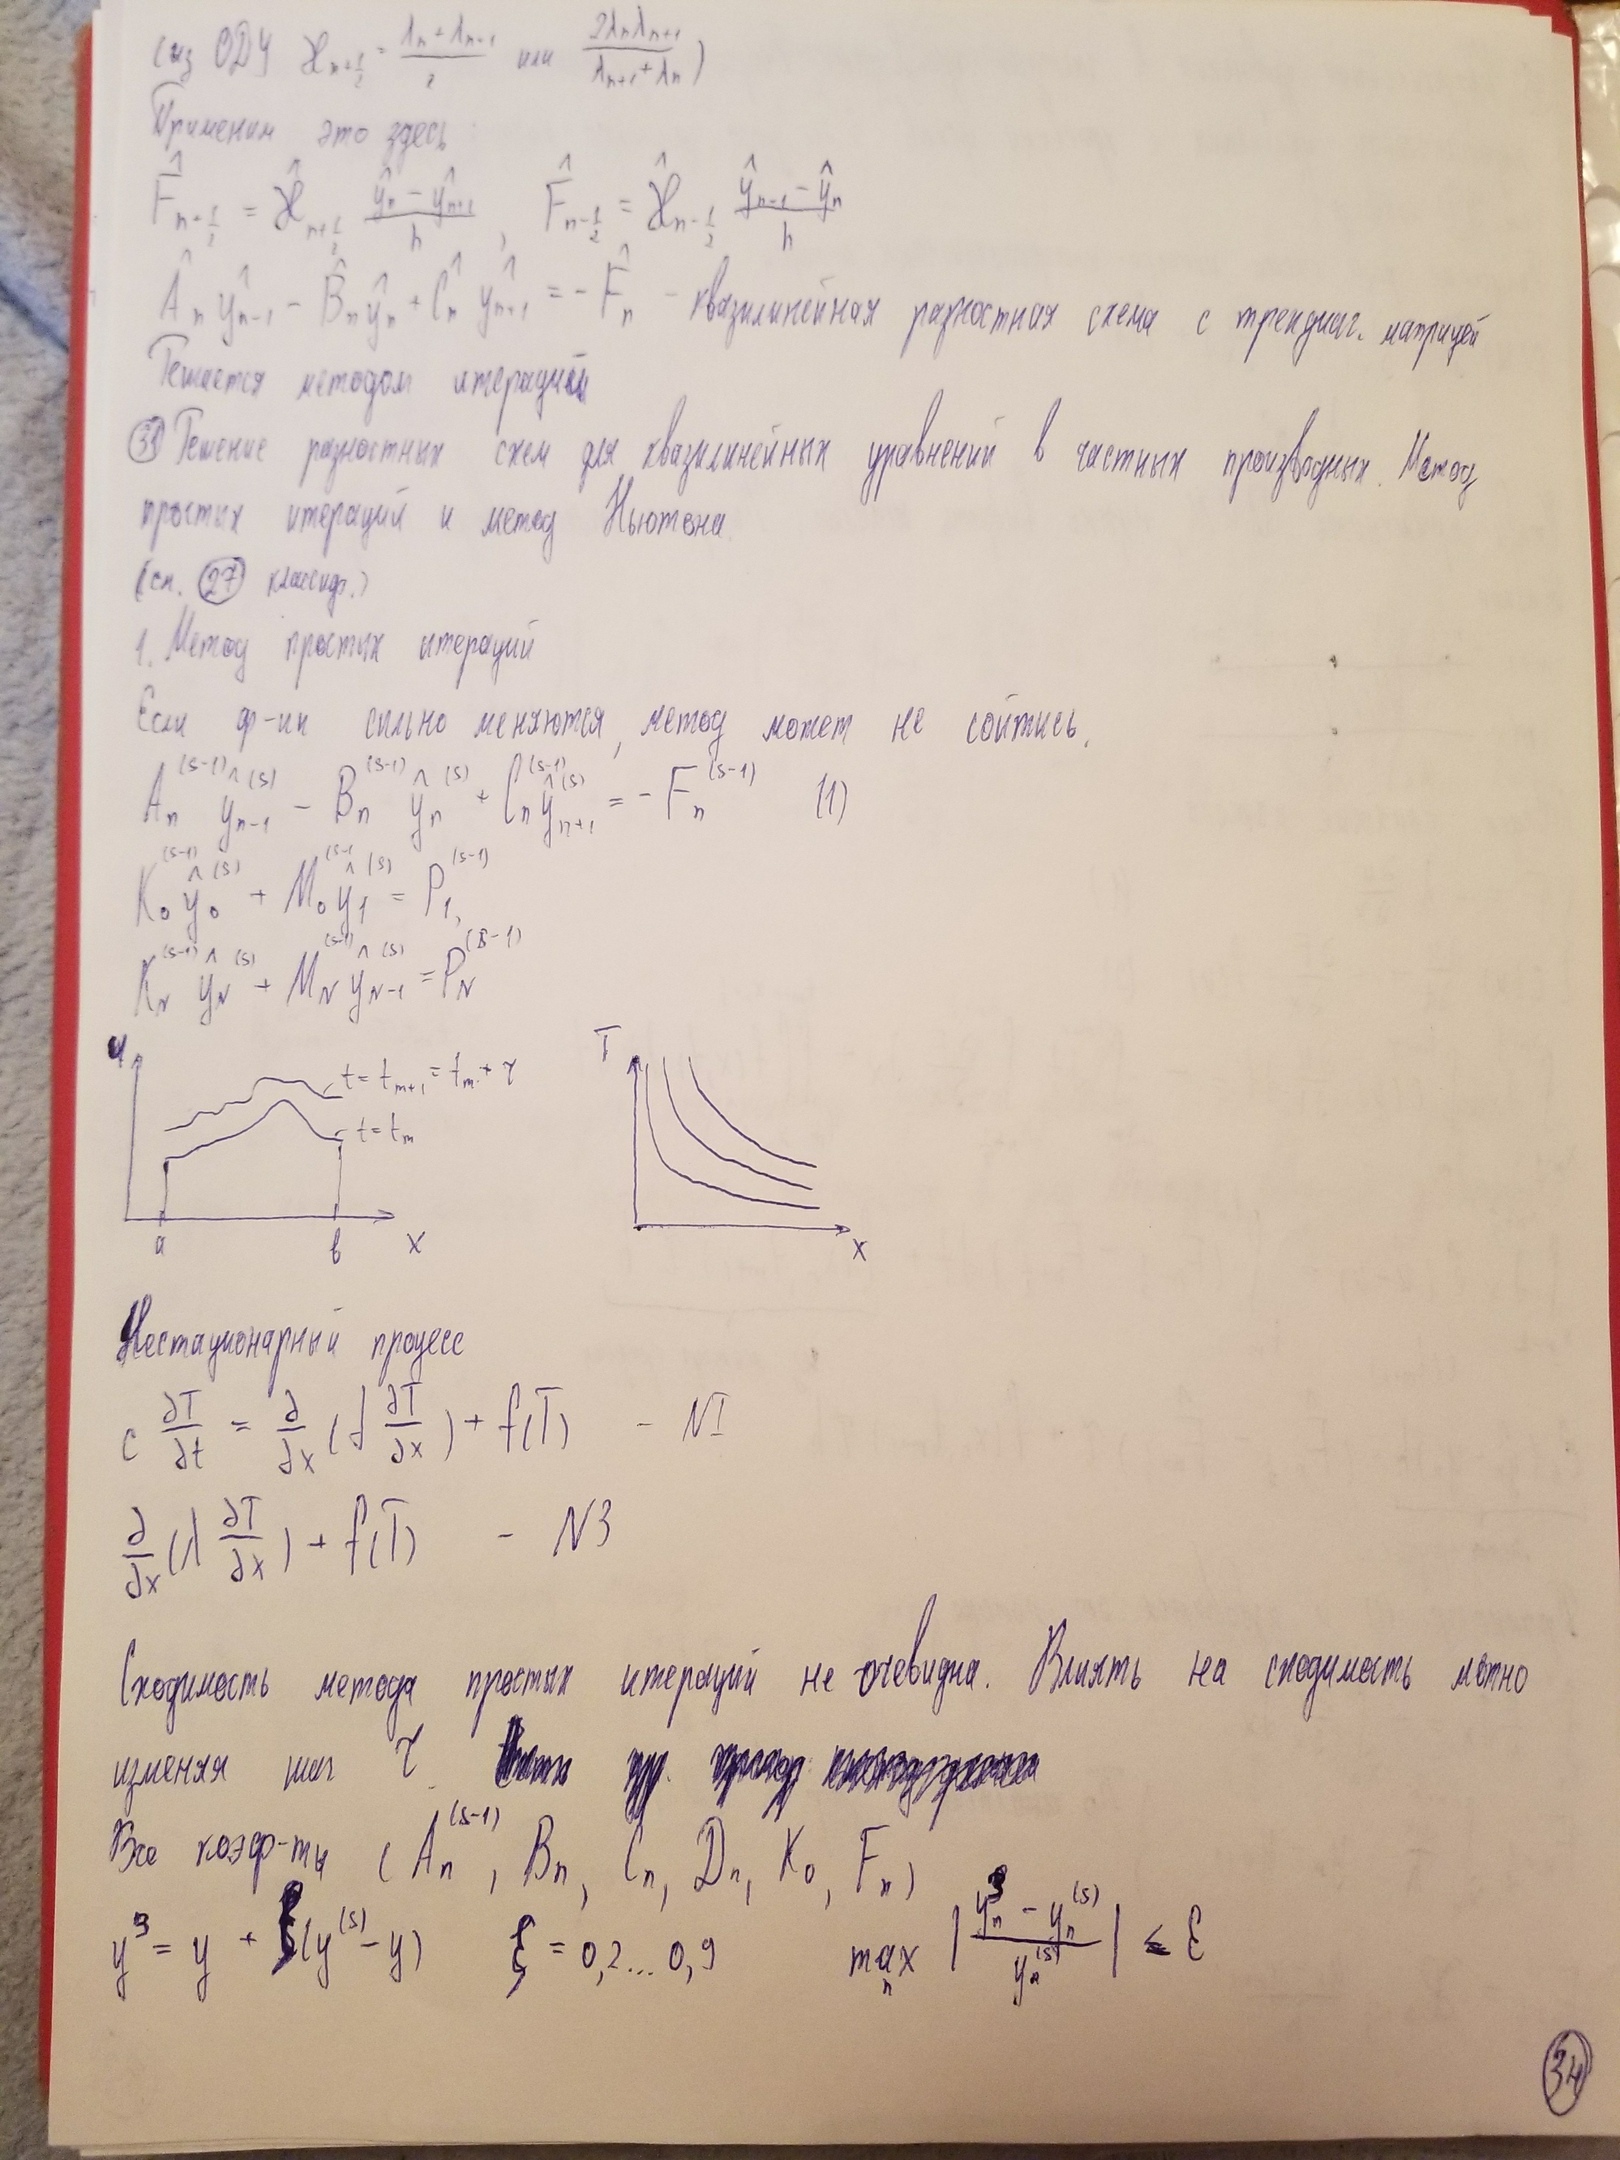 (из ОДУ ϰ_{n+1/2} = (λ_n + λ_{n+1})/2 или 2λ_nλ_{n+1}/(λ_{n+1}+λ_n))
Применим это здесь
F̂_{n+1/2} = ϰ̂_{n+1/2} (ŷ_n − ŷ_{n+1})/h, F̂_{n-1/2} = ϰ̂_{n-1/2} (ŷ_{n-1} − ŷ_n)/h
Â_n ŷ_{n-1} − B̂_n ŷ_n + Ĉ_n ŷ_{n+1} = − F̂_n - квазилинейная разностная схема с трехдиаг. матрицей
Решается методом итераций
Решение разностных схем для квазилинейных уравнений в частных производных. Метод
простых итераций и метод Ньютона.
(см. 27 классиф.)
1. Метод простых итераций
Если ф-ии сильно меняются, метод может не сойтись.
A_n^{(s-1)} ŷ_{n-1}^{(s)} − B_n^{(s-1)} ŷ_n^{(s)} + C_n^{(s-1)} ŷ_{n+1}^{(s)} = − F_n^{(s-1)} (1)
K_0^{(s-1)} ŷ_0^{(s)} + M_0^{(s-1)} ŷ_1^{(s)} = P_1^{(s-1)},
K_N^{(s-1)} ŷ_N^{(s)} + M_N^{(s-1)} ŷ_{N-1}^{(s)} = P_N^{(s-1)}
t = t_{m+1} = t_m + τ
t = t_m
a b x
T
x
Нестационарный процесс
c ∂T/∂t = ∂/∂x (λ ∂T/∂x) + f(T) - N1
∂/∂x (λ ∂T/∂x) + f(T) - N3
Сходимость метода простых итераций не очевидна. Влиять на сходимость можно
изменяя шаг τ.
Все коэф-ты (A_n^{(s-1)}, B_n, C_n, D_n, K_0, F_n)
y^з = y + ξ(y^{(s)} − y) ξ = 0,2...0,9 max_n |(y_n^з − y_n^{(s)})/y_n^{(s)}| ≤ ε
34